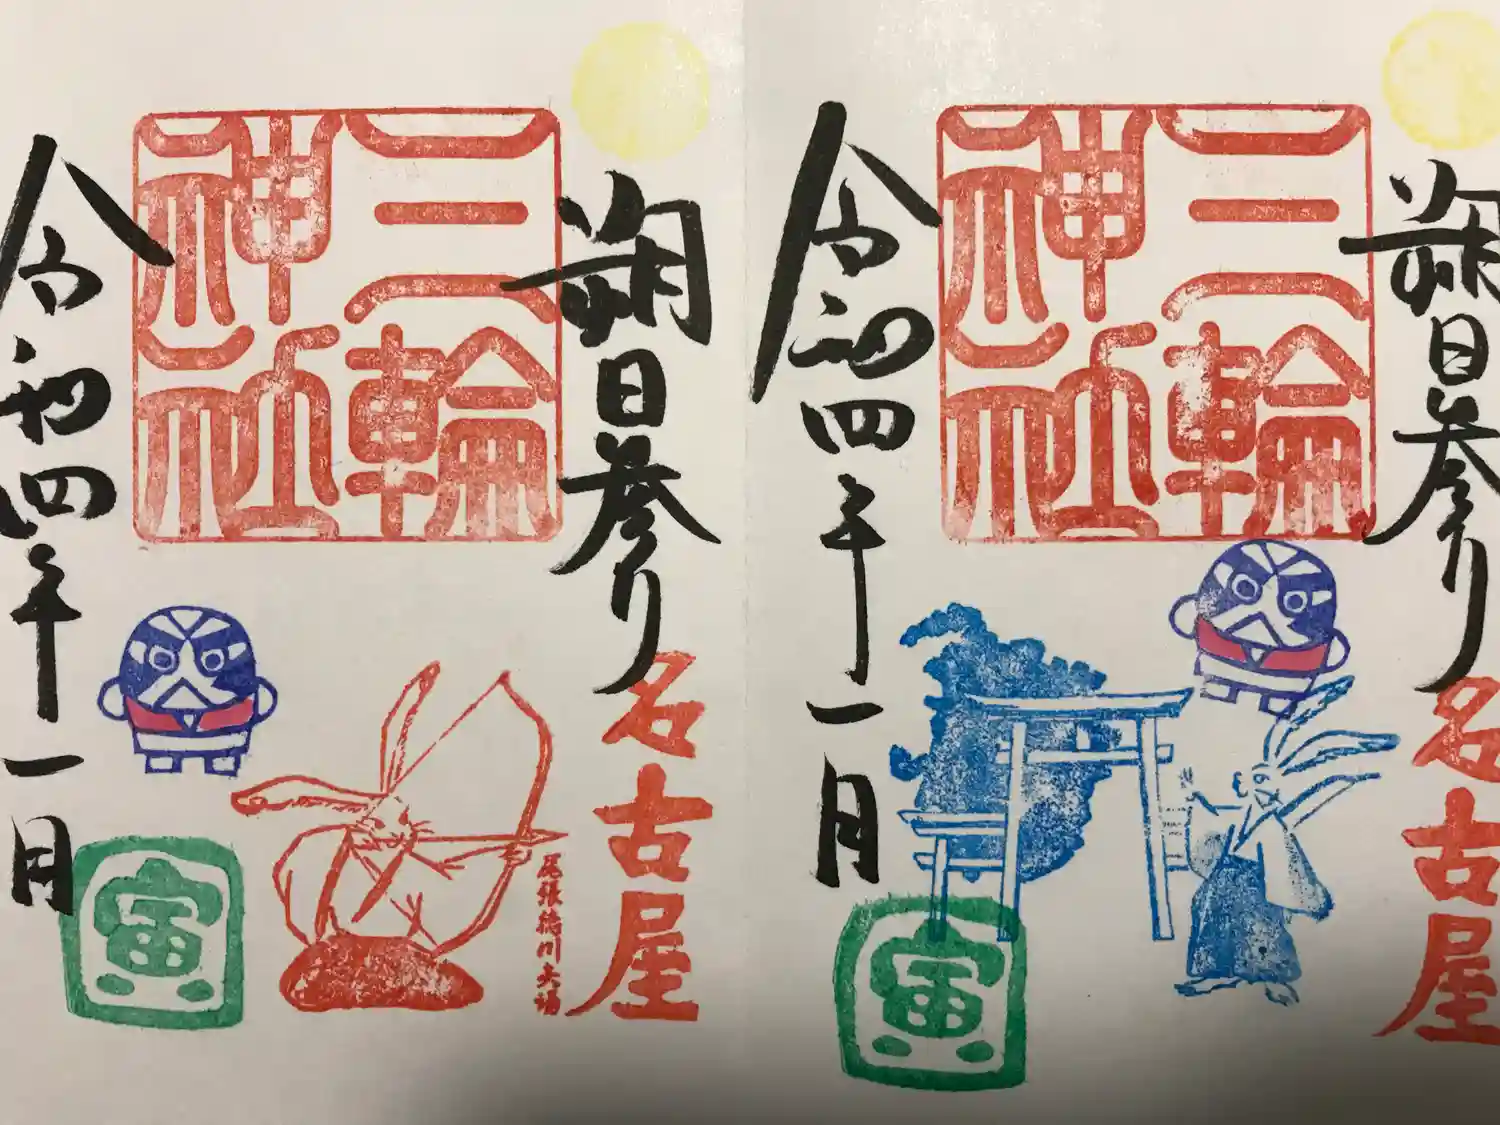 朔日参り
名古屋
三輪
神社
尾張徳川矢場
寅
令和四年一月
朔日参り
名古屋
三輪
神社
寅
令和四年一月